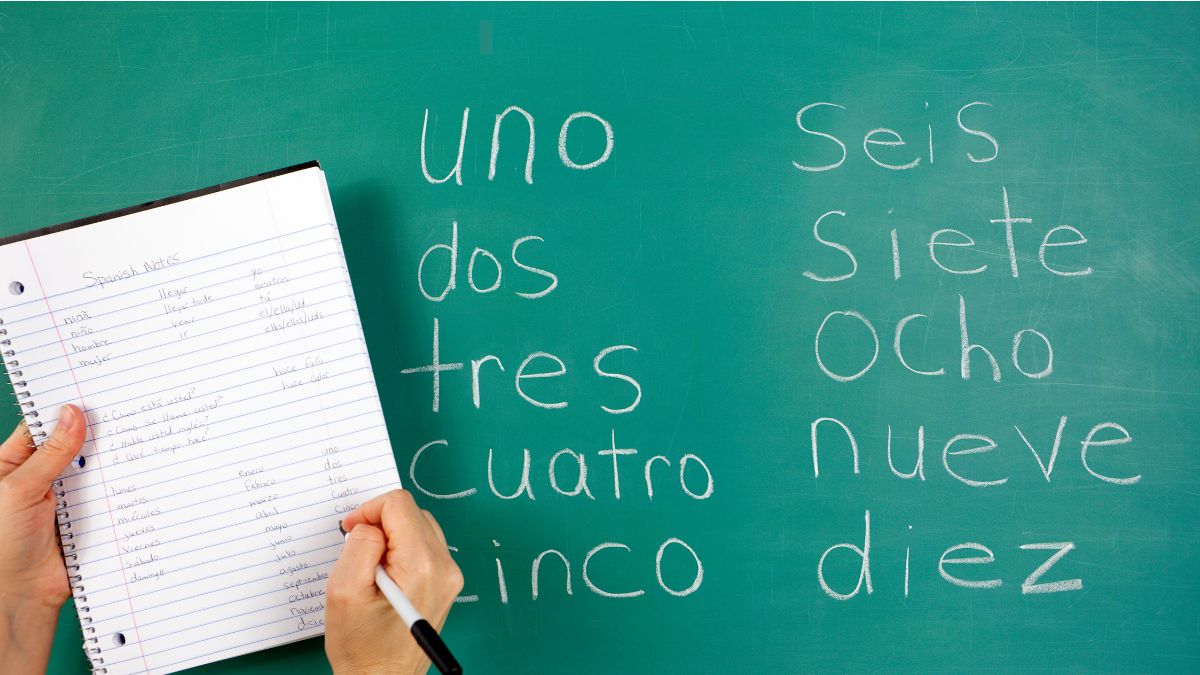 Spanish Notes
ninã
niño
hombre
mujer
llegar
llegar tarde
venir
ir
yo
nosotros
tú
el/ella/ud
ellos/ellas/uds.
hace frío
hace calor
¿Como está usted?
¿Como se llama usted?
¿Habla usted inglés?
¿Qué tiempo hace?
lunes
martes
miércoles
jueves
viernes
sábado
domingo
enero
febrero
marzo
abril
mayo
junio
julio
agosto
septiembre
octubre
noviemb
dicie
uno
dos
tres
cuatro
cinco
uno
dos
tres
cuatro
cinco
seis
siete
ocho
nueve
diez